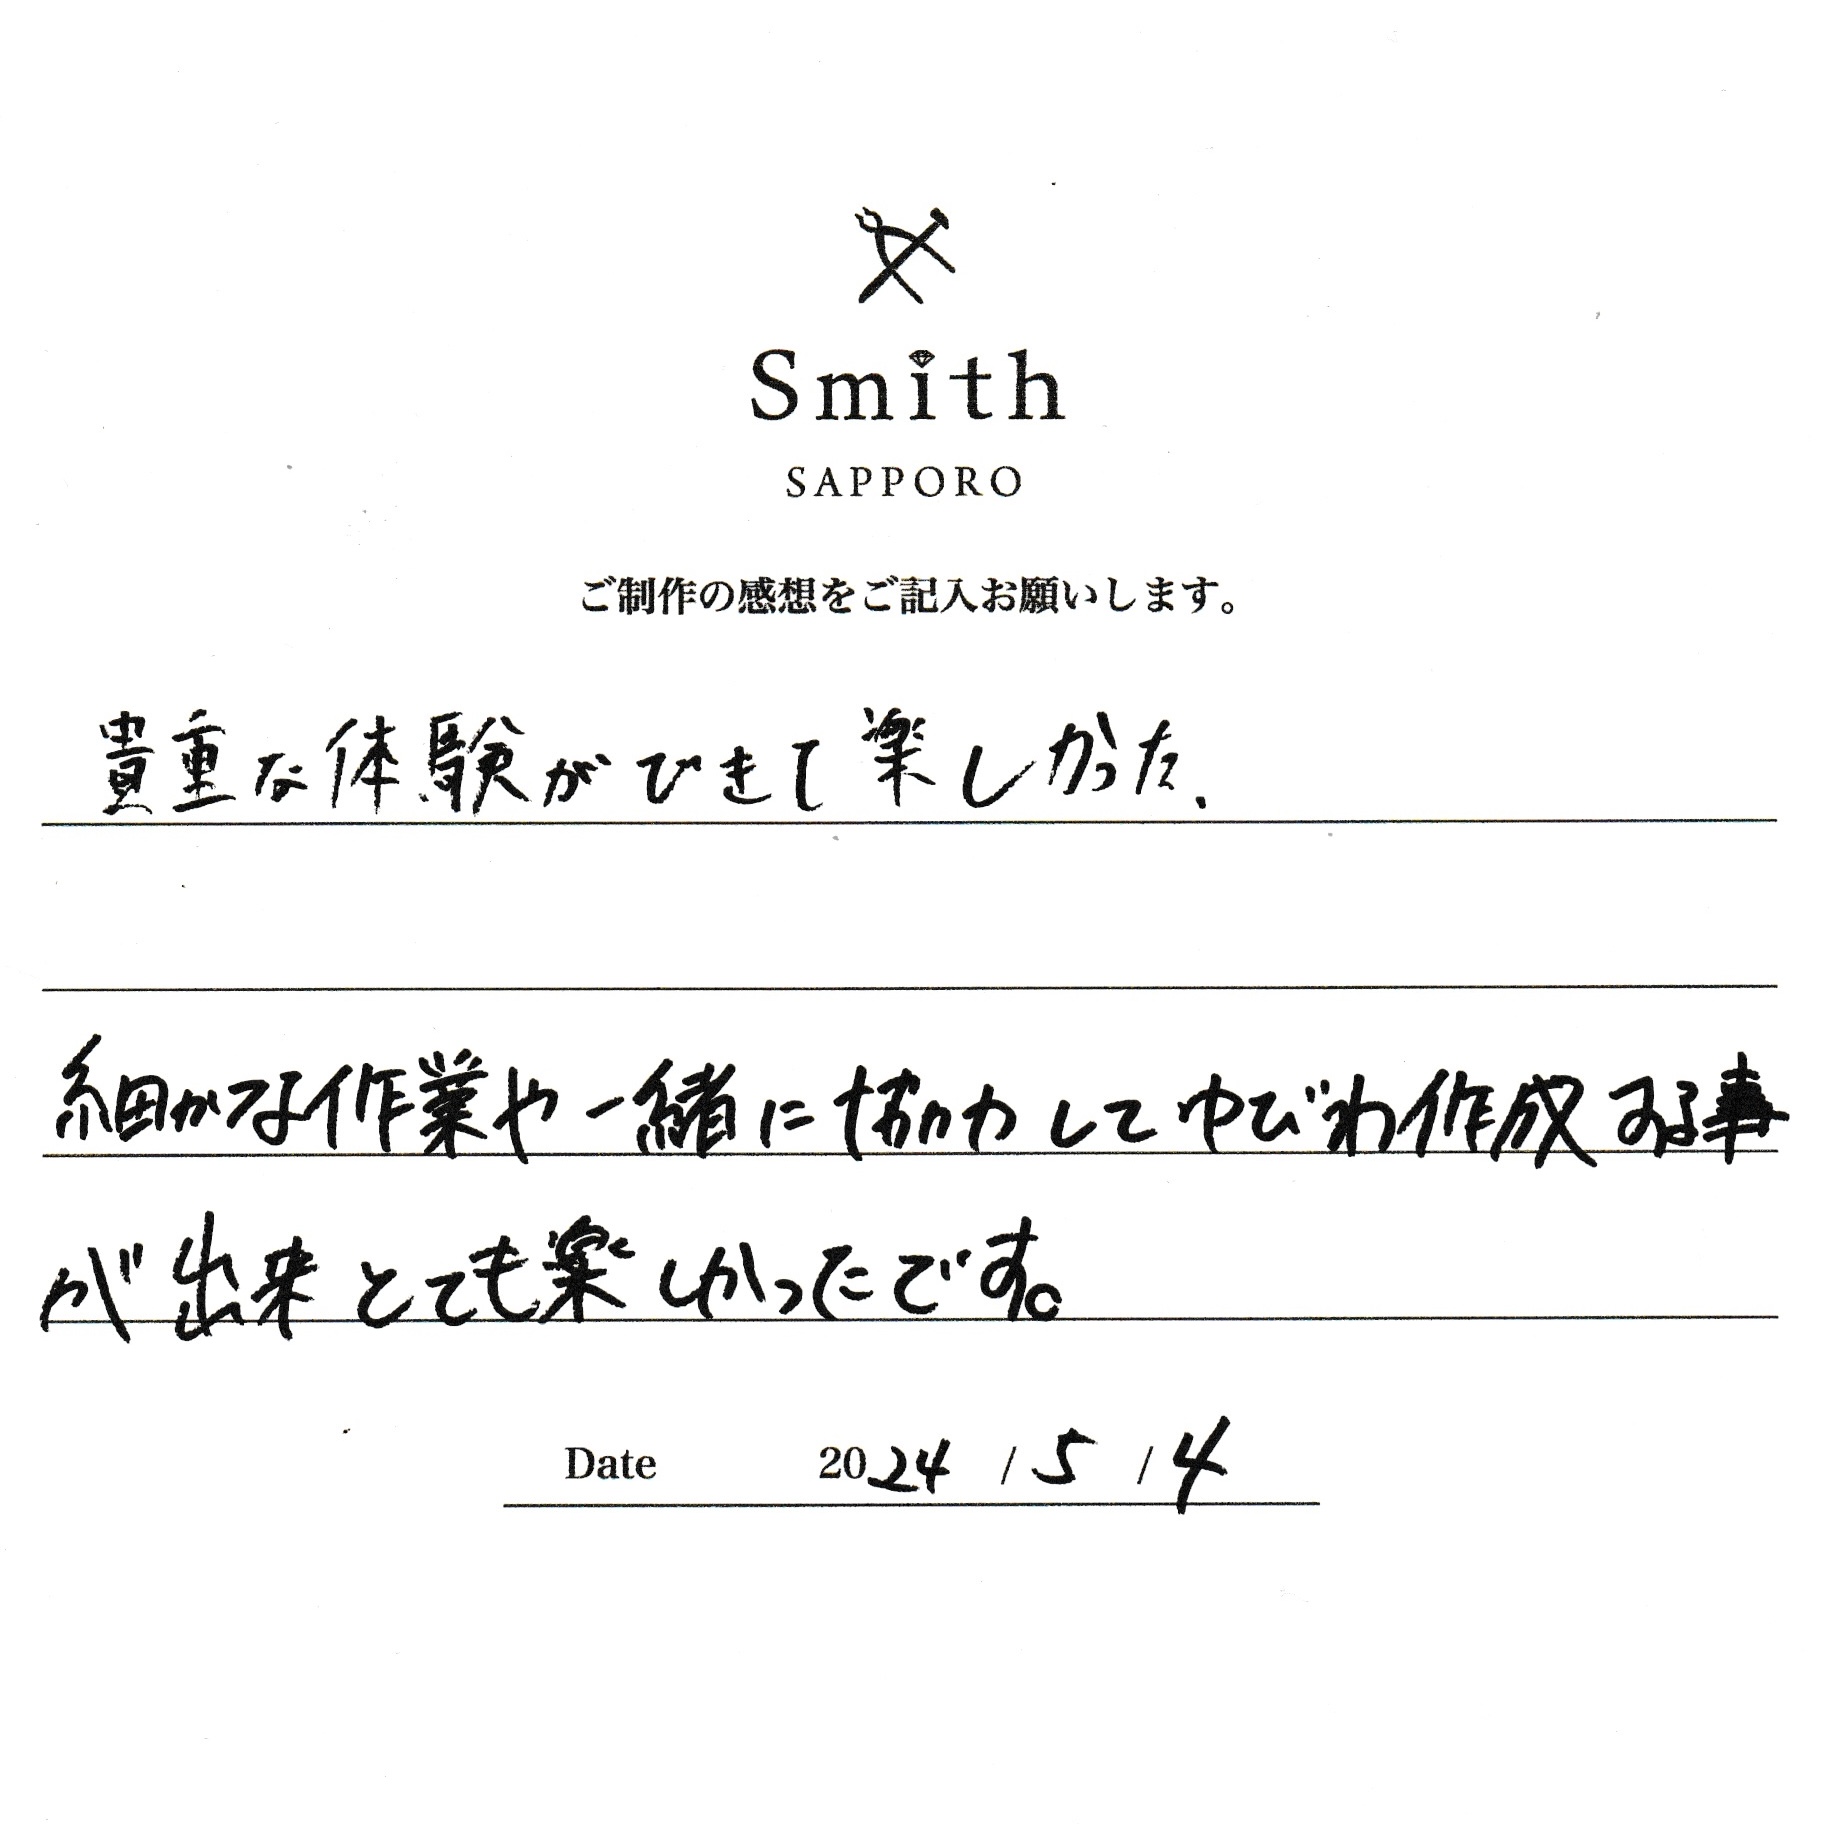 Smith
SAPPORO
ご制作の感想をご記入お願いします。
貴重な体験ができて楽しかった、
細かな作業や一緒に協力してゆびわ作成する事
が出来とても楽しかったです。
Date 2024 / 5 / 4